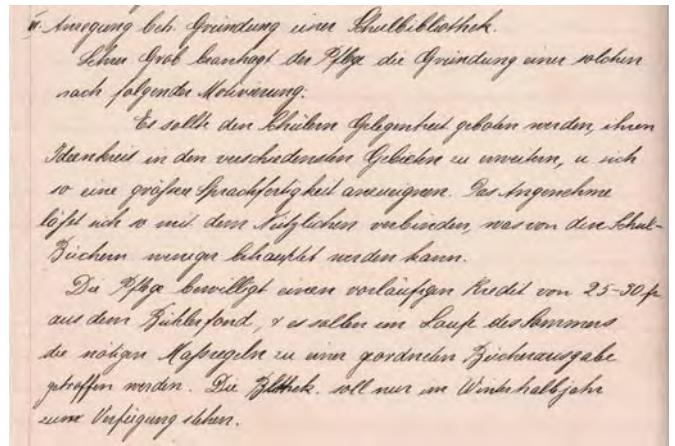 V. Anregung betr. Gründung einer Schulbibliothek.
Lehrer Grob beantragt der Pflege die Gründung einer solchen
nach folgender Motivierung:
Es sollte den Schülern Gelegenheit geboten werden, ihren
Ideenkreis in den verschiedensten Gebieten zu erweitern, u. sich
so eine größere Sprachfertigkeit anzueignen. Das Angenehme
läßt sich so mit dem Nützlichen verbinden, was von den Schul-
Büchern weniger behauptet werden kann.
Die Pflege bewilligt einen vorläufigen Kredit von 25-30 fr
aus dem Bühlerfond, & es sollen im Laufe des Sommers
die nötigen Maßregeln zu einer geordneten Bücherausgabe
getroffen werden. Die soll nur im Winterhalbjahr
zum Verfügung stehen.